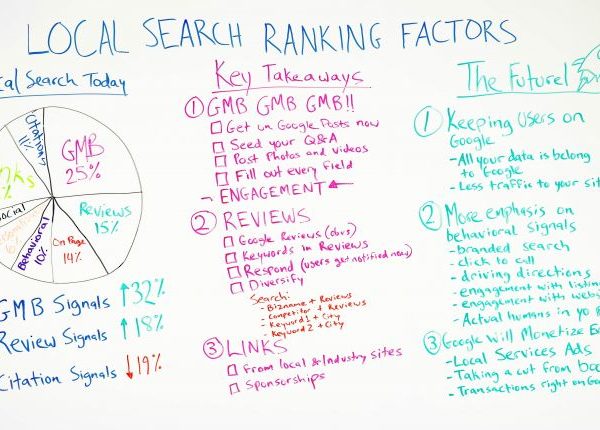 LOCAL SEARCH RANKING FACTORS
cal Search Today
GMB
25%
Reviews
15%
On Page
14%
Behavioral
10%
ocial
Citations
11%
GMB Signals ↑32%
Review Signals ↑18%
Citation Signals ↓19%
Key Takeaways
① GMB GMB GMB!!
□ Get on Google Posts now
□ Seed your Q&A
□ Post Photos and Videos
□ Fill out every field
¬ ENGAGEMENT ←
② REVIEWS
□ Google Reviews (obvs)
□ Keywords in Reviews
□ Respond (users get notified now)
□ Diversify
Search:
- Bizname + Reviews
- Competitor + Reviews
- Keyword 1 + City
- Keyword 2 + City
③ LINKS
□ From local & Industry sites
□ Sponsorships
The Future!
① Keeping Users on
Google
- All your data is belong
to Google
- Less traffic to your sit
② More emphasis on
behavioral signals
- branded search
- click to call
- driving directions
- engagement with listin
- engagement with webs
- Actual humans in yo
③ Google will Monetize E
- Local Services Ads
- Taking a cut from boo
- Transactions right on Go